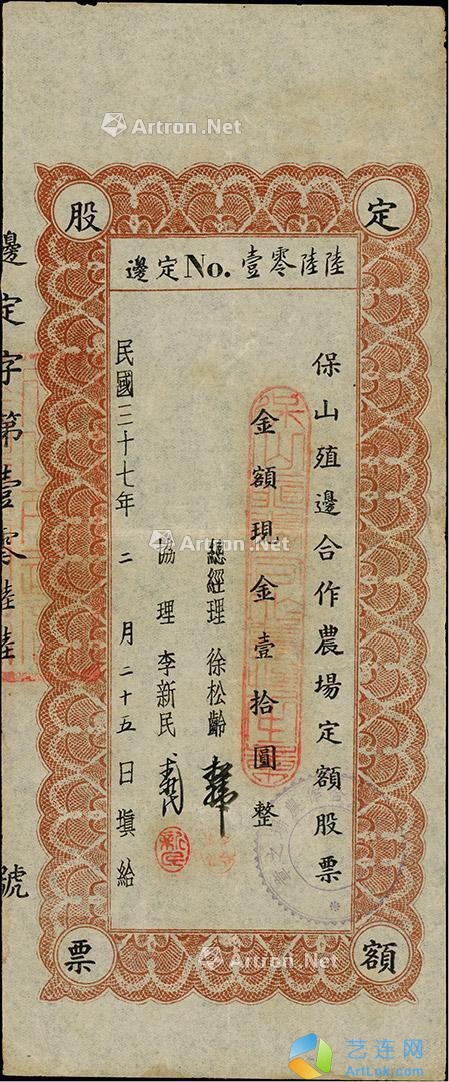 Artron.Net
定額股票
陸陸零壹 No. 定邊
保山殖邊合作農場定額股票
金額現金壹拾圓整
總經理 徐松齡
協理 李新民
民國三十七年二月二十五日填給
邊定字第壹零陸陸號
Artron.Net
Artron.Net
艺连网
ArtLnk.com